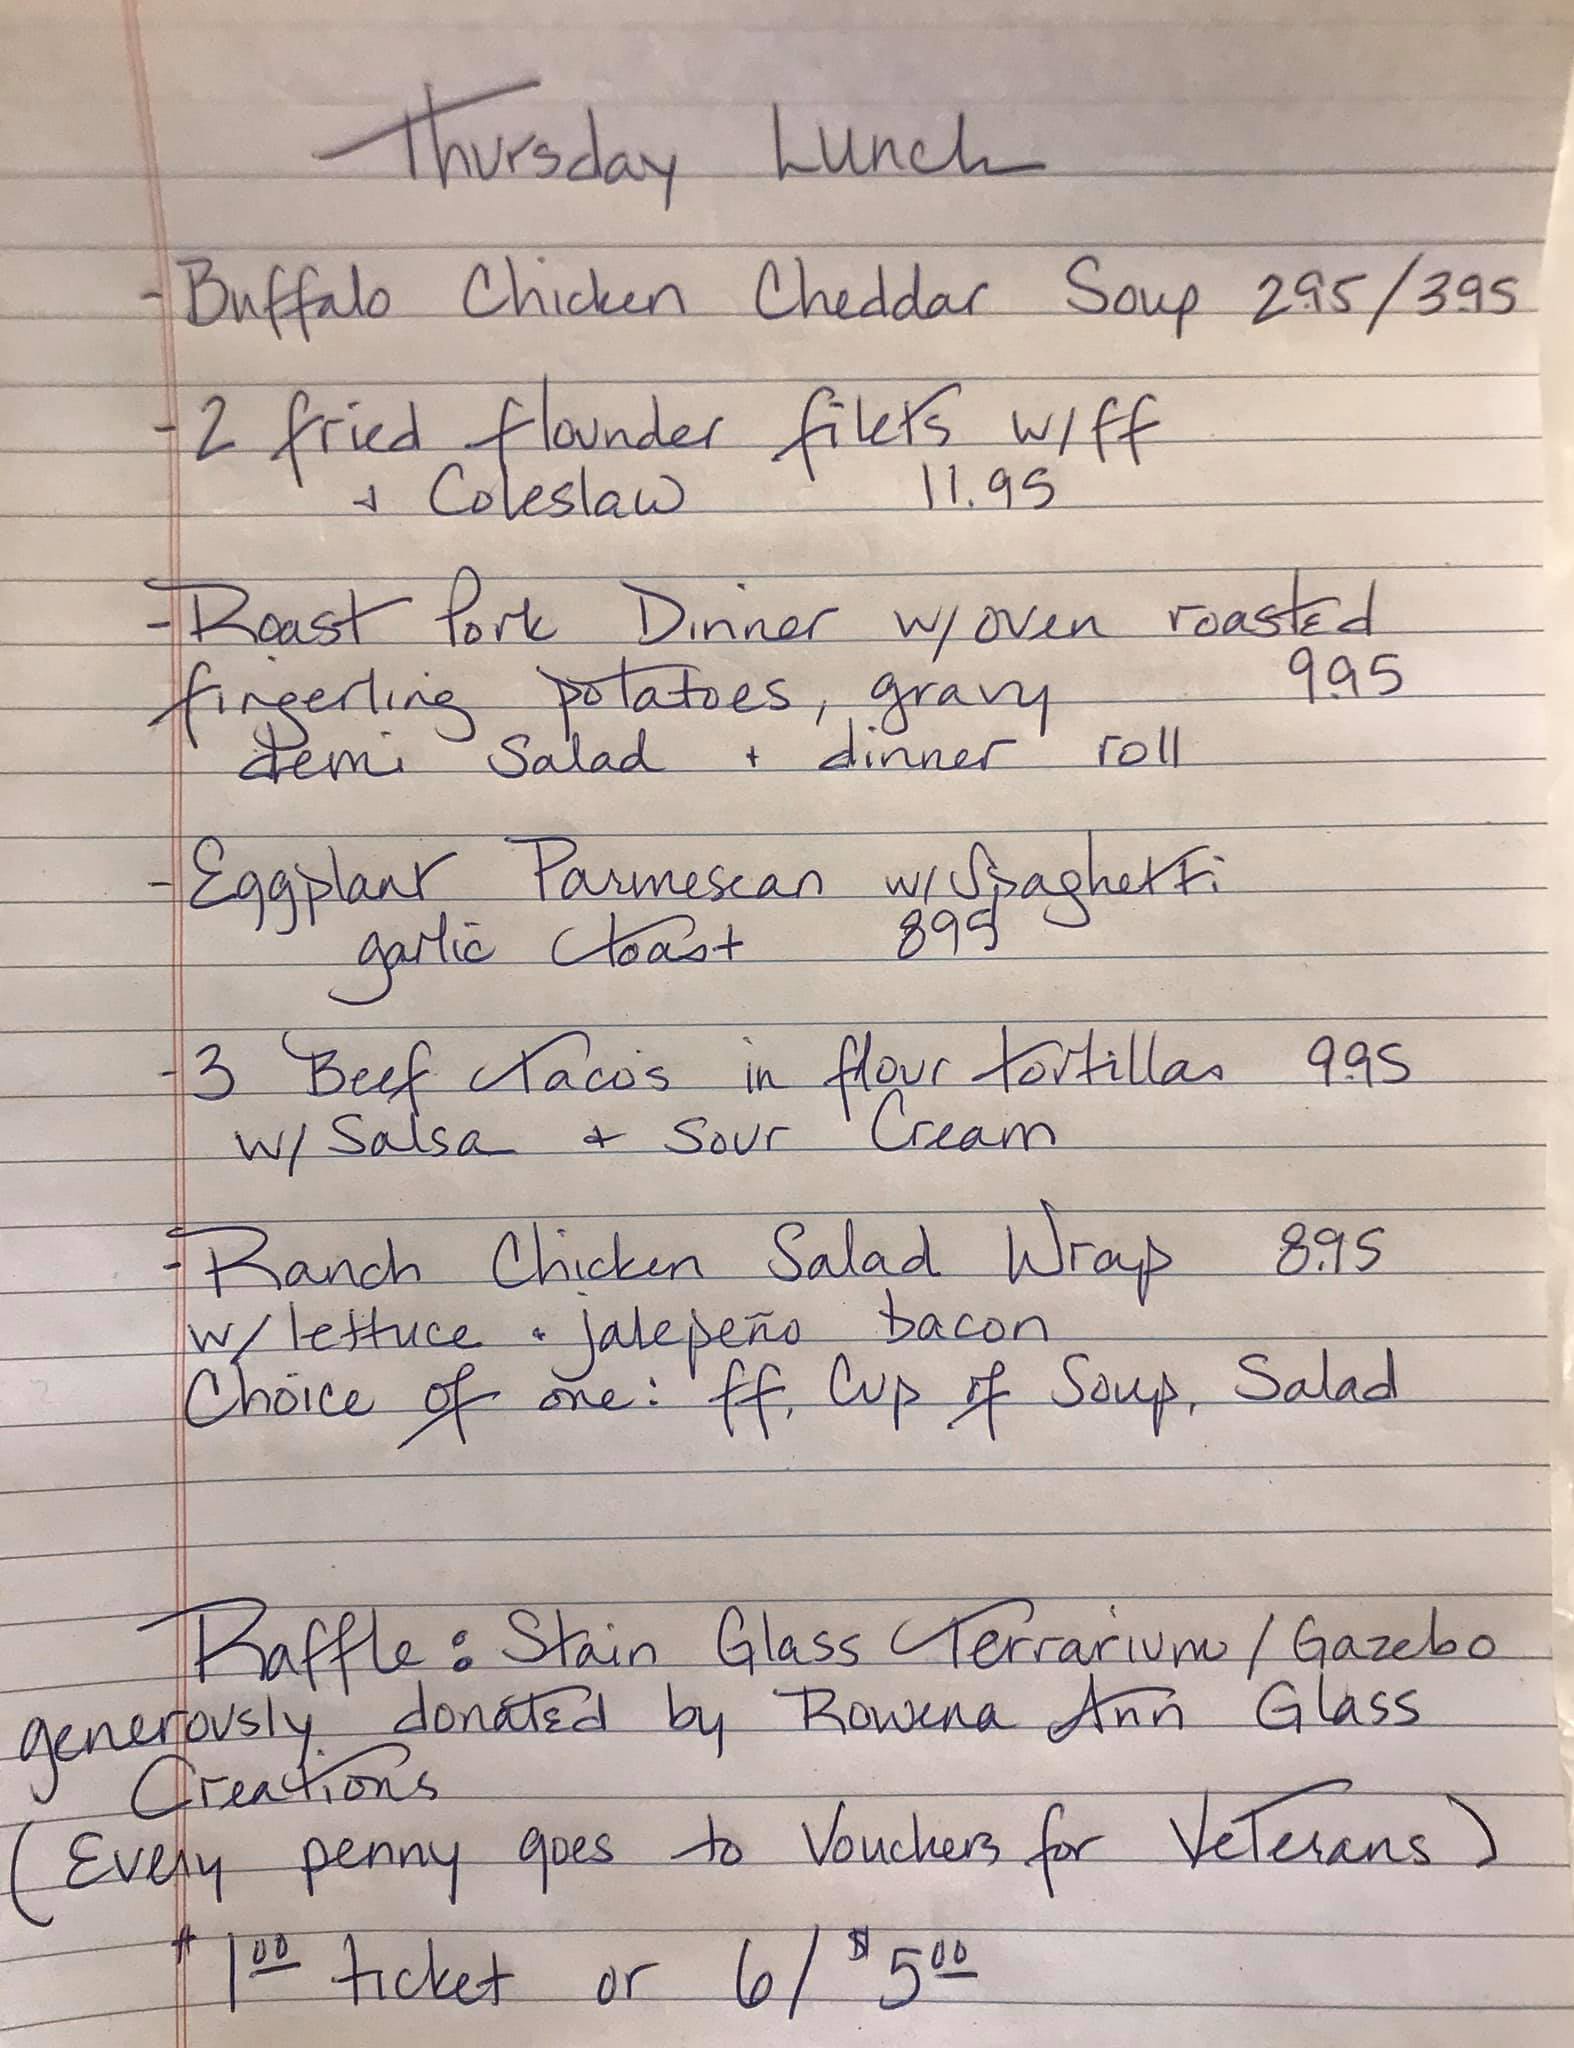 Thursday Lunch
- Buffalo Chicken Cheddar Soup 2.95/3.95
- 2 fried flounder filets w/ff
+ Coleslaw 11.95
- Roast Pork Dinner w/oven roasted
fingerling potatoes, gravy 9.95
demi Salad + dinner roll
- Eggplant Parmescan w/Spaghetti
garlic toast 895
- 3 Beef Taco's in flour tortillas 9.95
w/ Salsa + Sour Cream
- Ranch Chicken Salad Wrap 8.95
w/lettuce + jalepeño bacon
Choice of one: ff, Cup of Soup, Salad
Raffle: Stain Glass Terrarium/Gazebo
generously donated by Rowena Ann Glass
Creations
(Every penny goes to Vouchers for Veterans)
$1.00 ticket or 6/$5.00